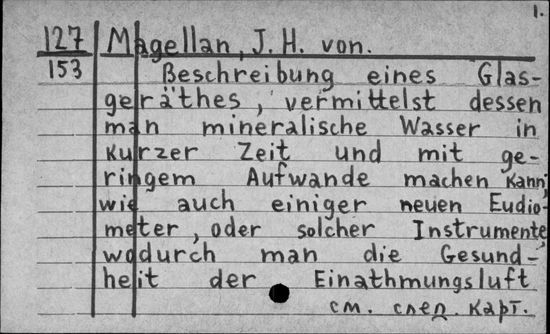 1.
127 Magellan, J. H. von.
153 Beschreibung eines Glas-
geräthes, vermittelst dessen
man mineralische Wasser in
kurzer Zeit und mit ge-
ringem Aufwande machen kann
wie auch einiger neuen Eudio-
meter, oder solcher Instrumente
wodurch man die Gesund-
heit der Einathmungsluft
см. след. карт.